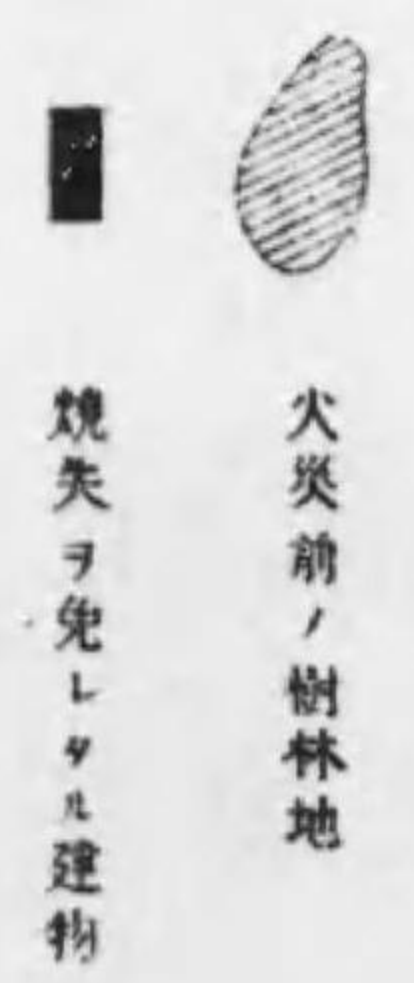 火災前ノ樹林地
焼失ヲ免レタル建物